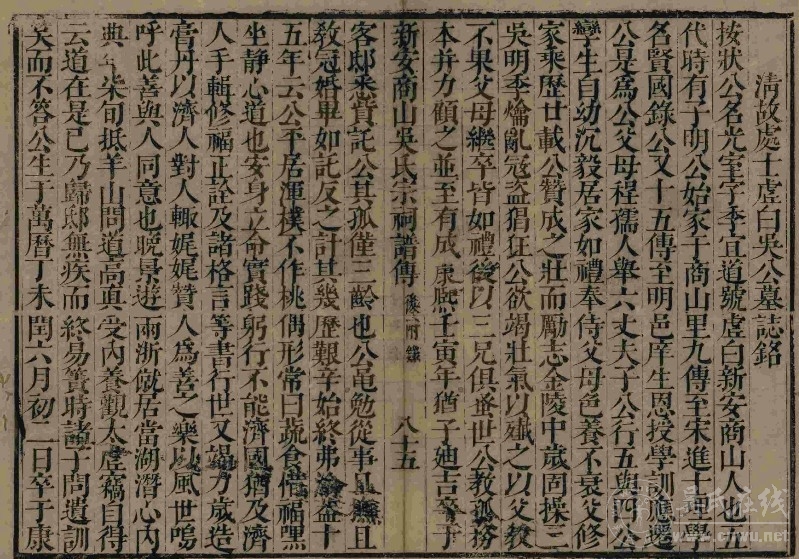 清故處士虛白吳公墓誌銘
按狀公名光室字李宜道號虛白新安商山人也五
代時有子明公始家于商山里九傳至宋進士事學
名賢國錄公又十五傳至明邑庠生恩授學訓諭遷
公是為公父母程孺人舉六丈夫子公行五與四公
孿生自幼沉毅居家如禮奉侍父母色養不衰父修
家乘歷廿載公贊成之壯而勵志金陵中歲固操三
吳明季爚亂冠盜猖狂公欲竭壯氣以殲之以父教
不果父母繼卒皆如禮後以三兄俱盛世公教孤務
本并力顧之並至有成康熙壬寅年猶子廸吉等于
新安商山吳氏宗祠譜傳 後 附錄 八十五
客邸悉貲託公其孤僅三齡也公黽勉從事且撫且
教冠婚畢如託反之計其幾歷艱辛始終弗渝蓋十
五年云公平居渾樸不作桃偶形常曰蔬食惜福嘿
坐靜心道也安身立命實踐躬行不能濟國猶及濟
人手輯修福正詮及諸格言等書行世又竭力歲造
膏丹以濟人對人輙娓娓贊人為善之樂以風世嗚
呼此善與人同意也晚景遊兩浙僦居當湖潛心內
典年柒旬抵羊山問道高真受內養觀太虛竊自得
云道在是已乃歸邸無疾而終易簀時諸子問遺訓
笑而不答公生于萬曆丁未閏六月初二日卒于康
吳氏在线
www.ctwu.net